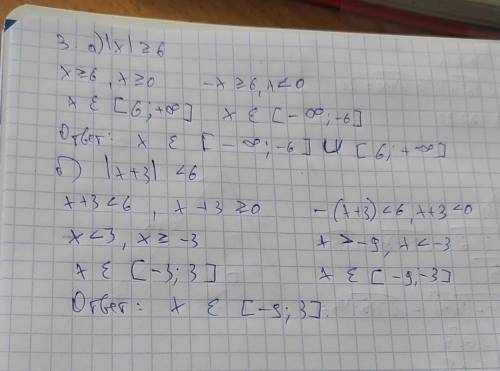 3. а) |x| ≥ 6
x ≥ 6, x ≥ 0 -x ≥ 6, x < 0
x ε [6; +∞] x ε [-∞; -6]
Ответ: x ε [-∞; -6] U [6; +∞]
б) |x+3| < 6
x+3 < 6, x+3 ≥ 0 -(x+3) < 6, x+3 < 0
x < 3, x ≥ -3 x > -9, x < -3
x ε [-3; 3] x ε [-9; -3]
Ответ: x ε [-9; 3].